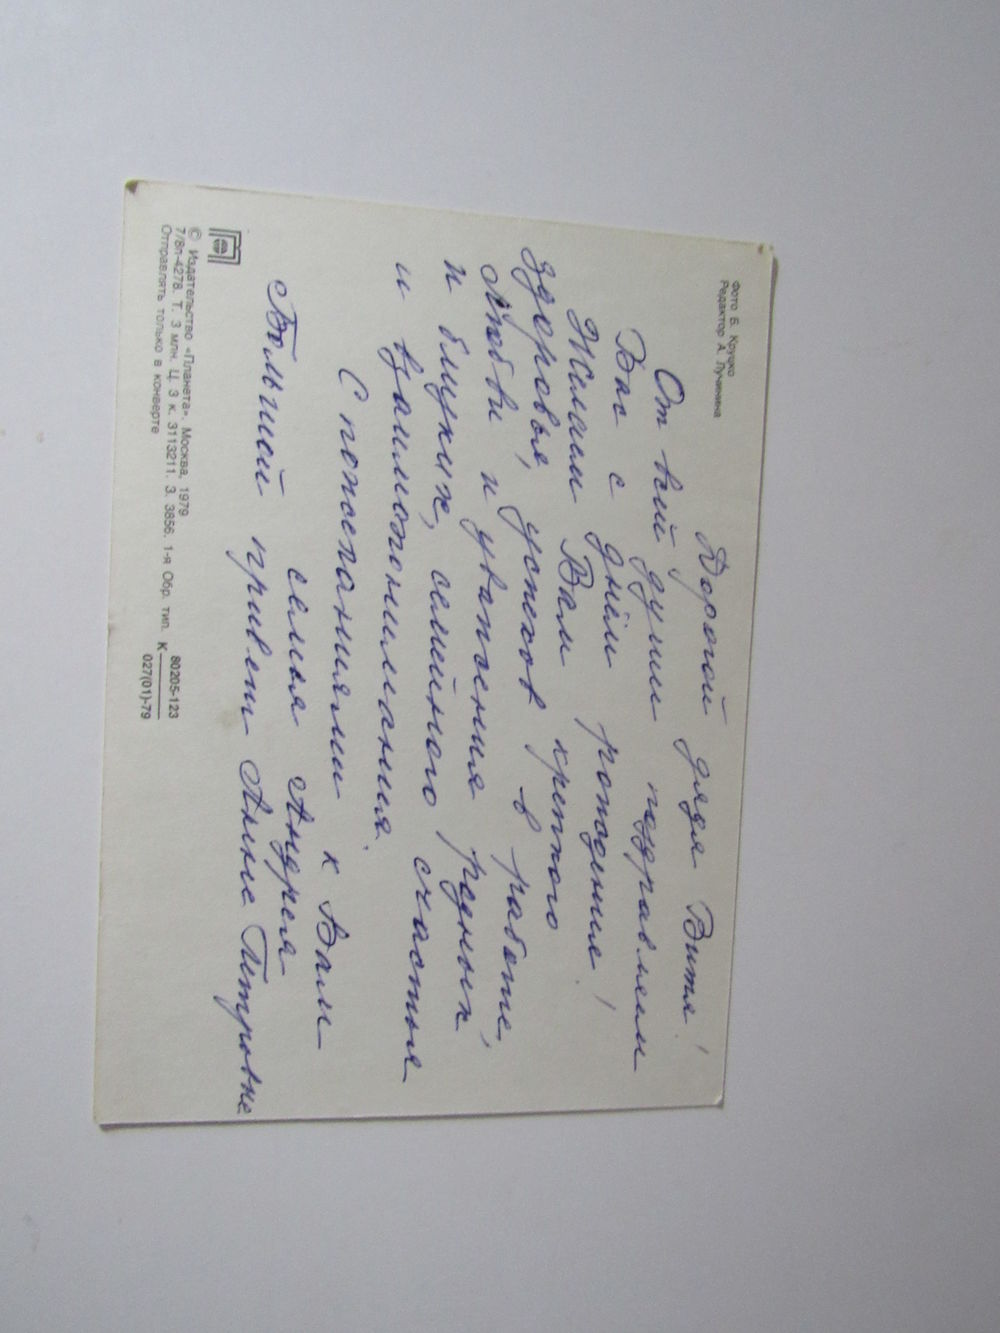 Фото Б. Круцко
Редактор А. Лучинина
Дорогой дядя Витя!
От всей души поздравляем
Вас с днём рождения!
Желаем Вам крепкого
здоровья, успехов в работе,
любви и уважения родных
и близких, семейного счастья
и взаимопонимания.
С пожеланиями к Вам
семья Андрея
Большой привет Анне Петровне
© Издательство «Планета». Москва, 1979
7/8п-4278. Т. 3 млн. Ц. 3 к. 3113211. З. 3856. 1-я Обр. тип. К 80205-123
027(01)-79
Отправлять только в конверте